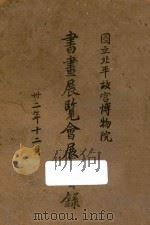 國立北平故宮博物院
書畫展覽會展
錄
卅二年十二月
www.mtoou.info